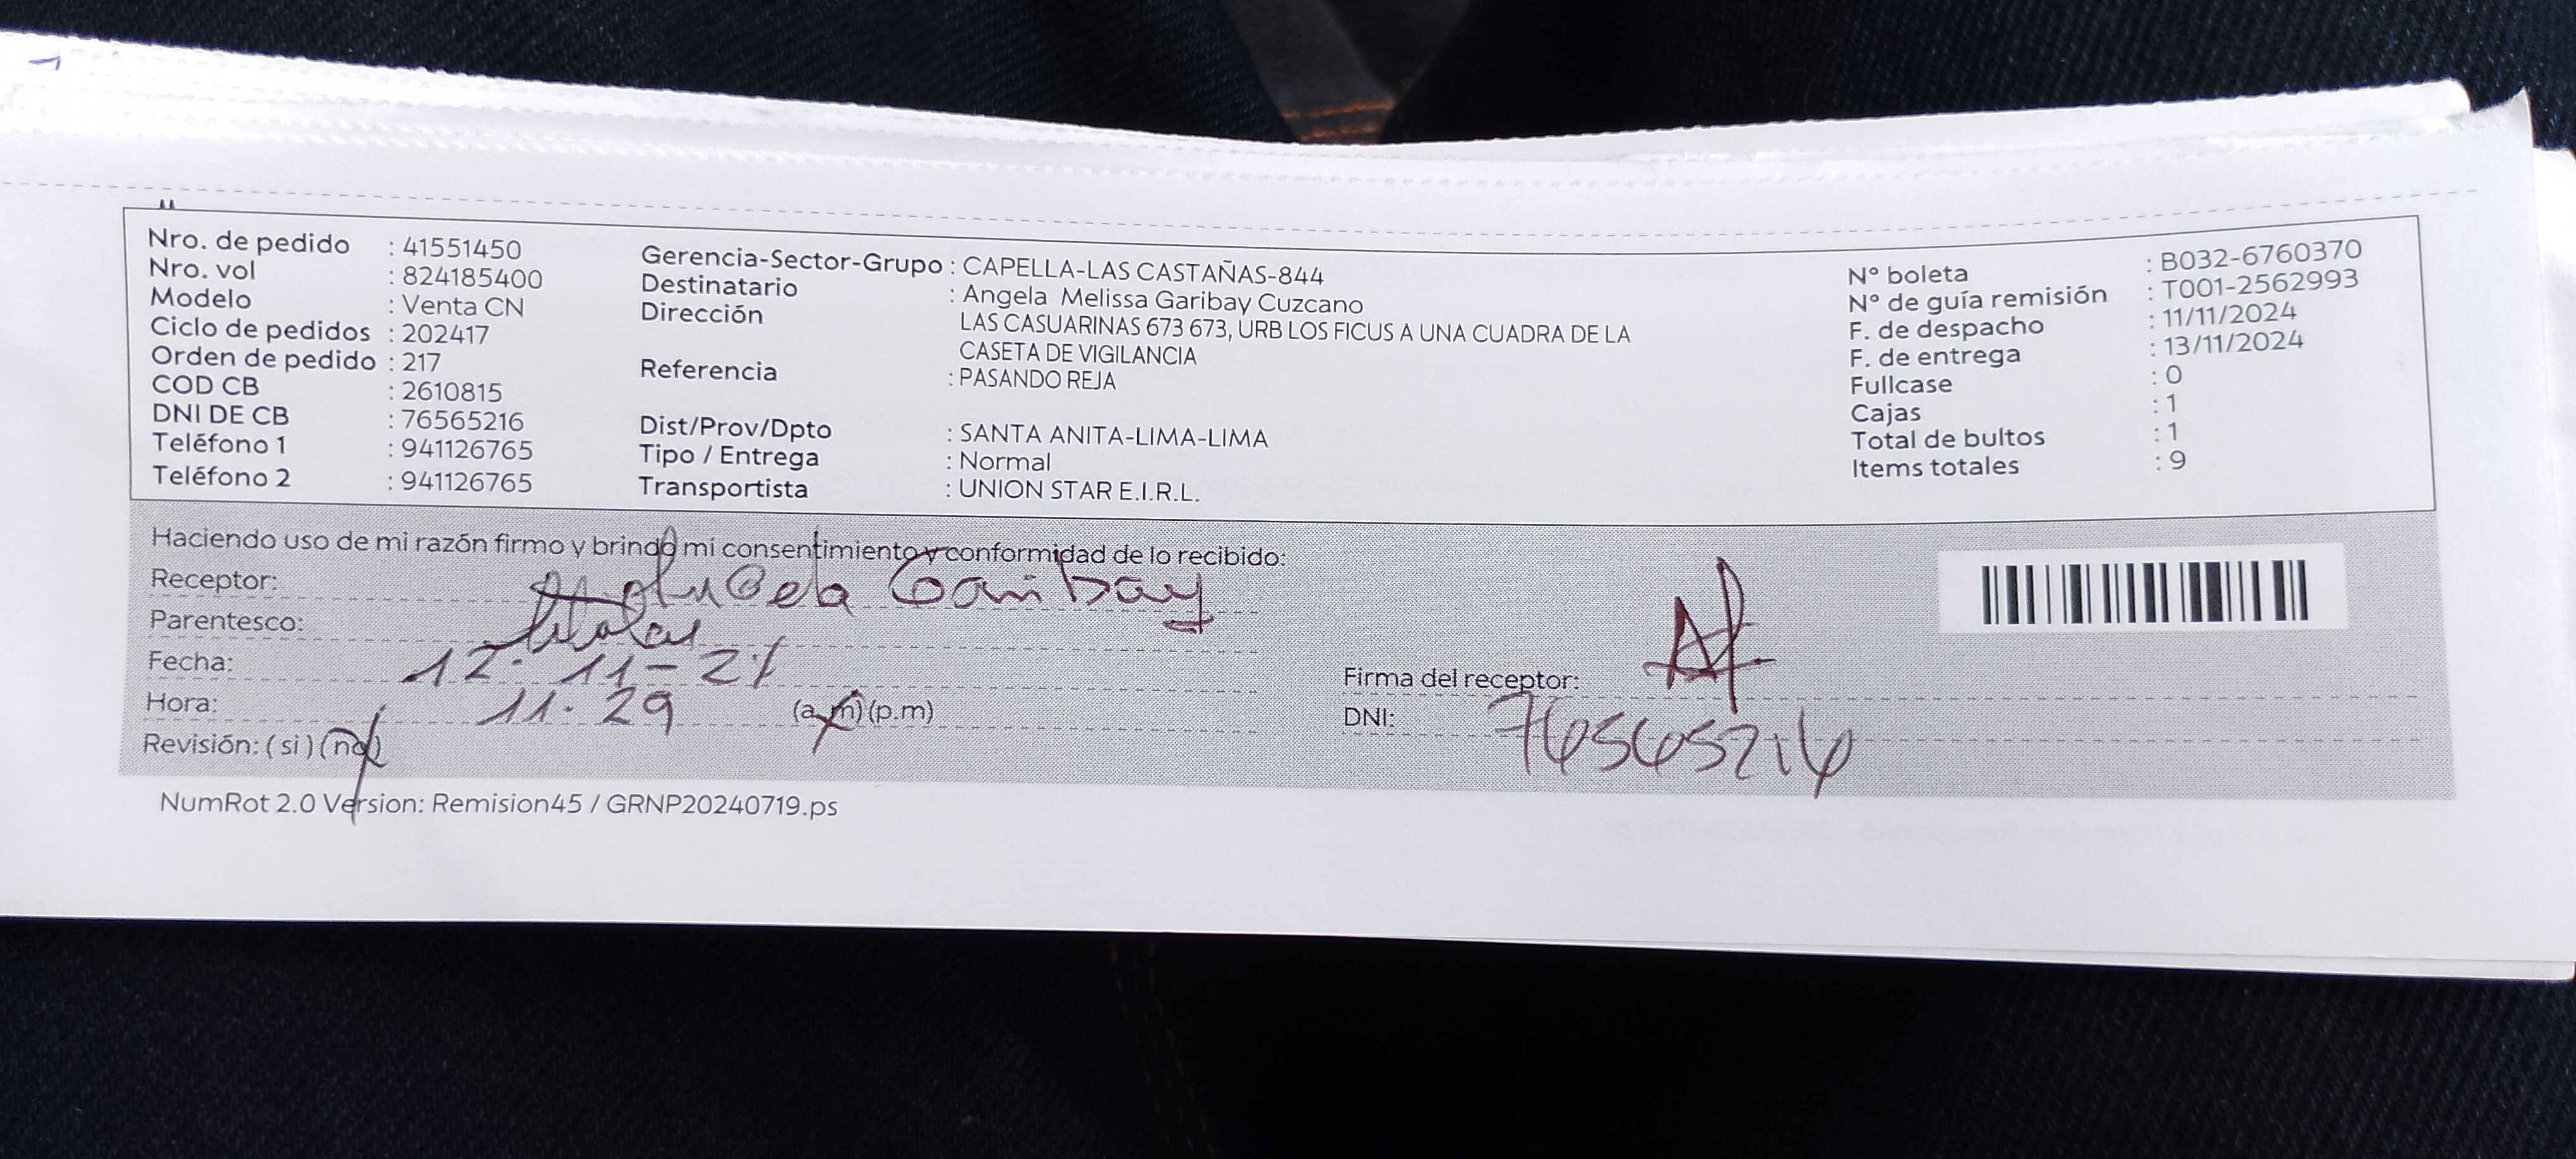 Nro. de pedido : 41551450
Nro. vol : 824185400
Modelo : Venta CN
Ciclo de pedidos : 202417
Orden de pedido : 217
COD CB : 2610815
DNI DE CB : 76565216
Teléfono 1 : 941126765
Teléfono 2 : 941126765
Gerencia-Sector-Grupo : CAPELLA-LAS CASTAÑAS-844
Destinatario : Angela Melissa Garibay Cuzcano
Dirección LAS CASUARINAS 673 673, URB LOS FICUS A UNA CUADRA DE LA
CASETA DE VIGILANCIA
Referencia : PASANDO REJA
Dist/Prov/Dpto : SANTA ANITA-LIMA-LIMA
Tipo / Entrega : Normal
Transportista : UNION STAR E.I.R.L.
N° boleta : B032-6760370
N° de guía remisión : T001-2562993
F. de despacho : 11/11/2024
F. de entrega : 13/11/2024
Fullcase : 0
Cajas : 1
Total de bultos : 1
Items totales : 9
Haciendo uso de mi razón firmo y brindo mi consentimiento y conformidad de lo recibido:
Receptor: Garibay
Parentesco: titular
Fecha: 12-11-24
Hora: 11.29 (a.m) (p.m)
Revisión: (si) (no)
Firma del receptor:
DNI: 76565216
NumRot 2.0 Version: Remision45 / GRNP20240719.ps